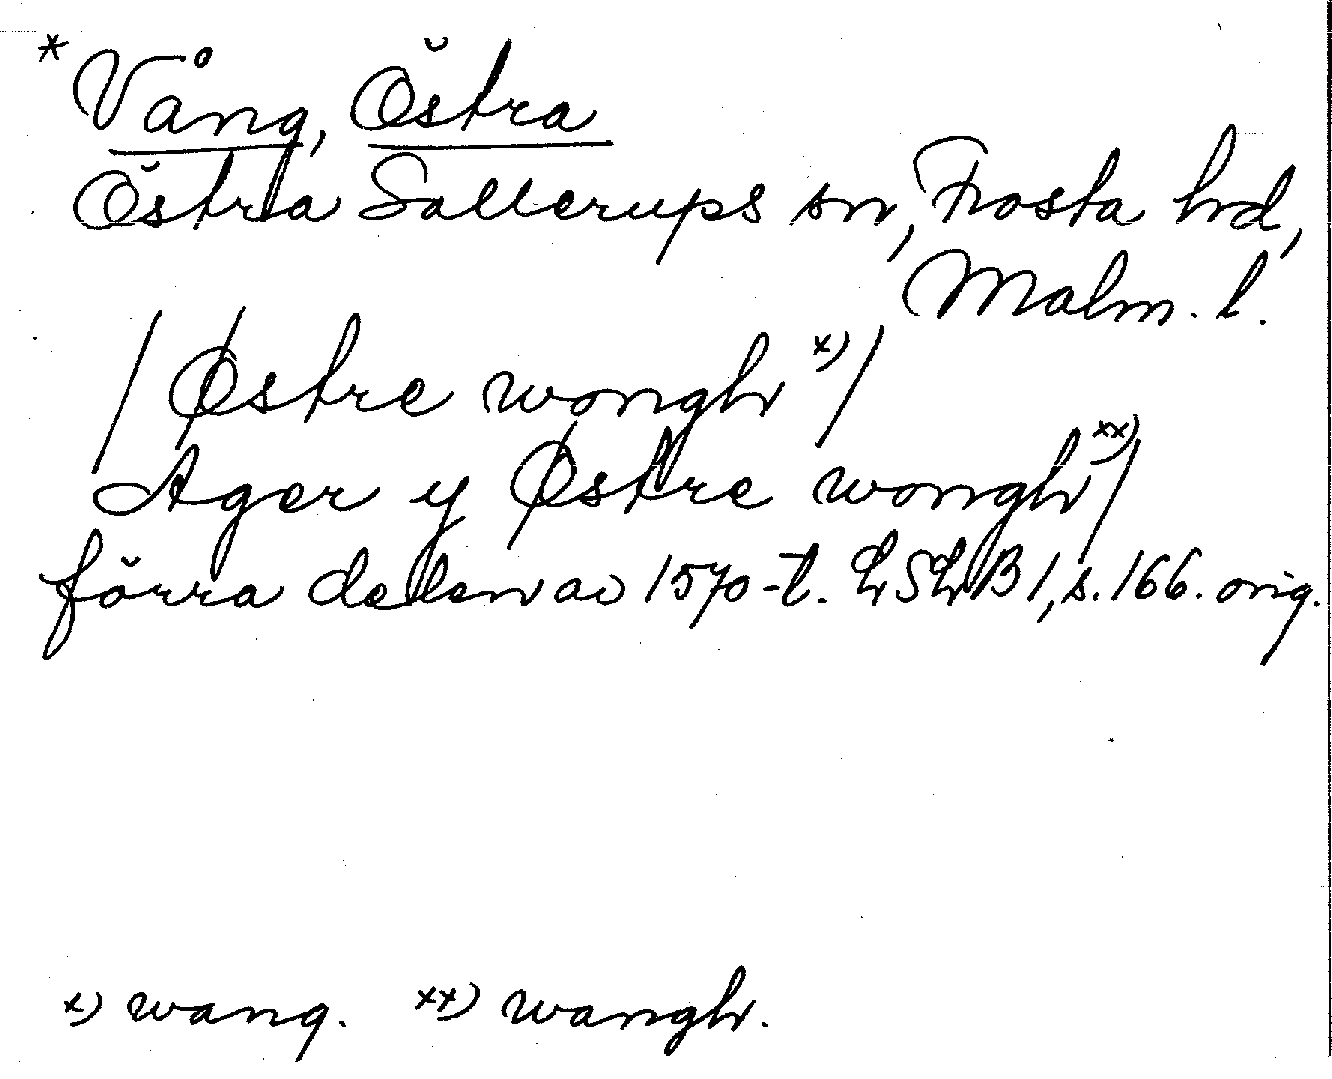 *Vång, Östra
Östra Sallerups sn, Frosta hd,
Malm. l.
/ Østre wongh x) /
Ager y Østre wongh xx) /
förra delen av 1570-t. LSLB 1, s. 166. orig.
x) wang. xx) wangh.